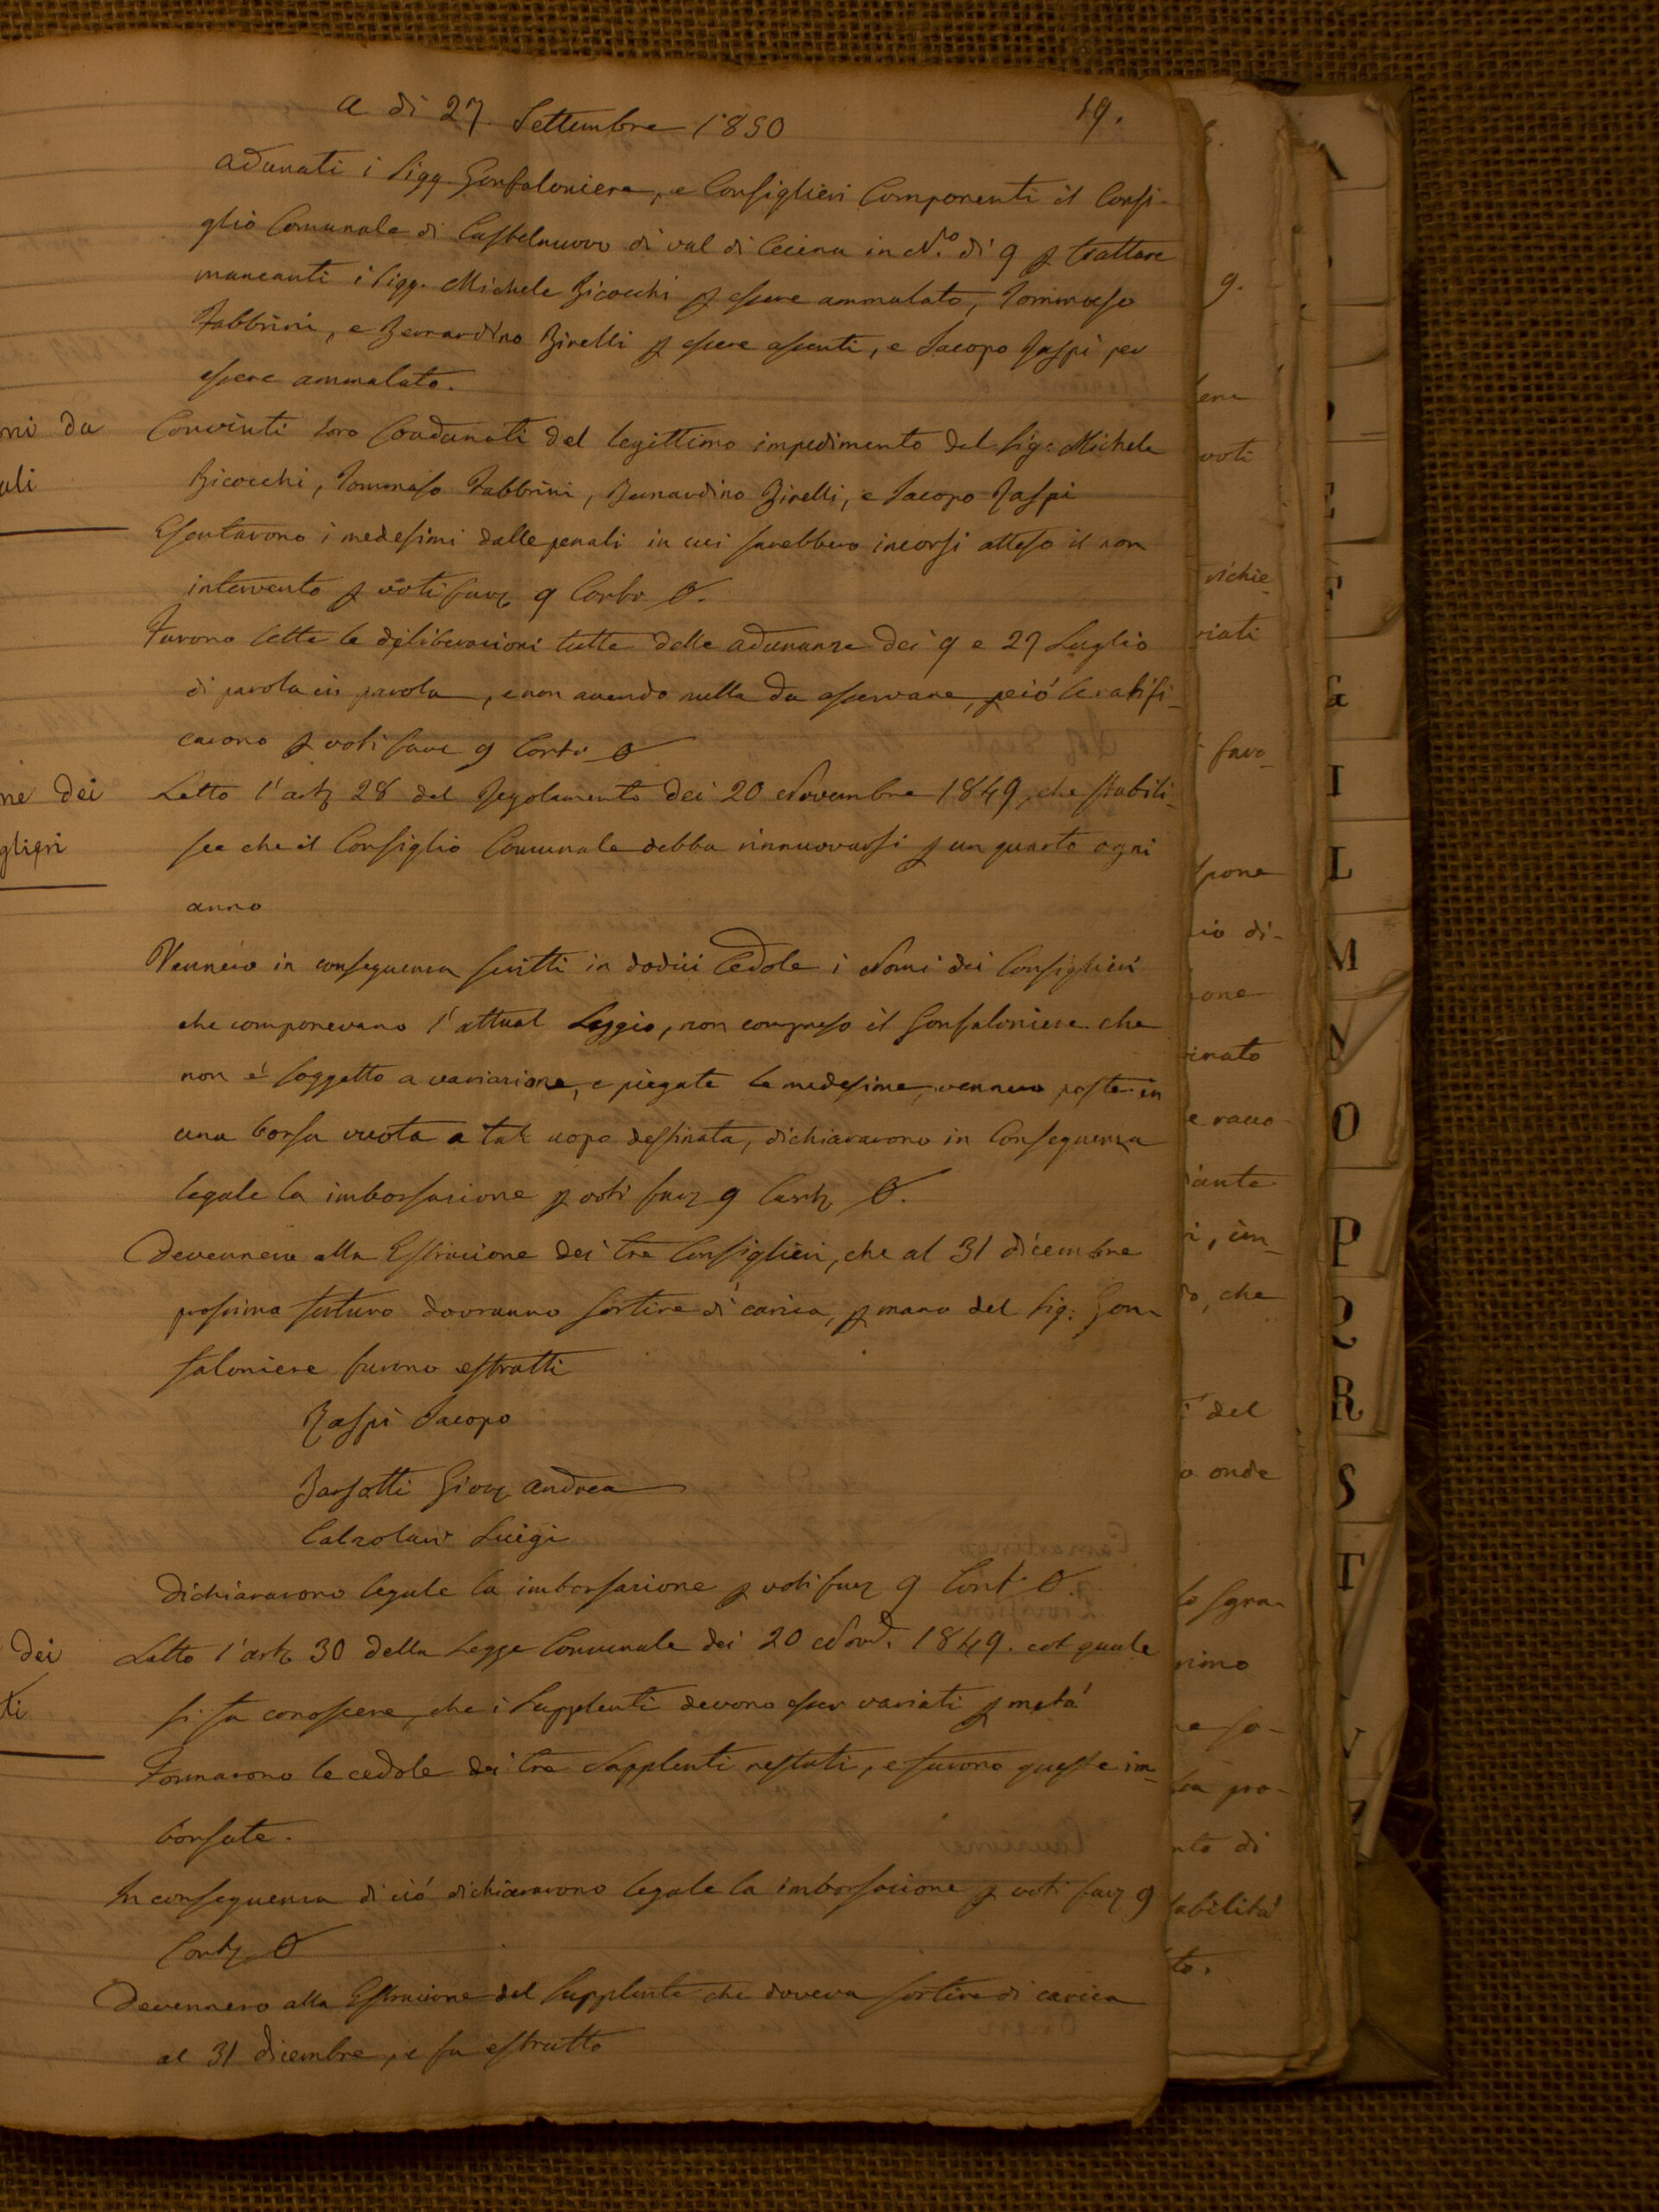 19.
a di 27 Settembre 1850
adunati i Sigg. Gonfaloniere, e Consiglieri Componenti il Consi-
glio Comunale di Castelnuovo di val di Cecina in N.o di 9 p trattare
mancanti i Sigg. Michele Bicocchi p essere ammalato, Tommaso
Fabbrini, e Bernardino Birelli p essere assenti, e Jacopo Raspi per
essere ammalato.
Convinti loro Coadunati del legittimo impedimento del Sig. Michele
Bicocchi, Tommaso Fabbrini, Bernardino Birelli, e Jacopo Raspi
Esentarono i medesimi dalle penali in cui sarebbero incorsi atteso il non
intervento p voti fav 9 Contr 0.
Furono lette le deliberazioni tutte delle adunanze dei 9 e 27 Luglio
di parola in parola, e non avendo nulla da osservare, perciò le ratifi-
carono p voti fav 9 Contr 0
Letto l'art 28 del Regolamento dei 20 Novembre 1849, che stabili-
sce che il Consiglio Comunale debba rinnuovarsi p un quarto ogni
anno
Vennero in conseguenza scritti in dodici Cedole i Nomi dei Consiglieri
che componevano l'attual Seggio, non compreso il Gonfaloniere che
non é soggetto a variazione, e piegate le medesime, vennero poste in
una borsa vuota a tal uopo destinata, dichiararono in Conseguenza
legale la imborsazione p voti fav 9 Contr 0.
Devennero alla Estrazione dei tre Consiglieri, che al 31 dicembre
prossimo futuro dovranno sortire di carica, p mano del Sig. Gon-
faloniere furono estratti
Raspi Jacopo
Barsotti Giov Andrea
Calzolari Luigi
Dichiararono legale la imborsazione p voti fav 9 Cont 0.
Letto l'art 30 della Legge Comunale dei 20 Novd. 1849. col quale
si fa conoscere, che i Supplenti devono esser variati p metá
Formarono le cedole dei tre Supplenti restati, e furono queste im-
borsate.
In conseguenza di ció dichiararono legale la imborsazione p voti fav 9
Contr 0
Devennero alla Estrazione del Supplente che doveva sortire di carica
al 31 dicembre, e fu estratto
ni da
ali
ne dei
glieri
dei
ti
g.
voti
richie
riati
favo-
spone
io di-
ione
inato
iante
o, che
del
o onde
lo sgra-
nimo
ia pro-
nto di
tabilitá
to.
E
F
G
I
L
M
N
O
P
Q
R
S
T
V
Z